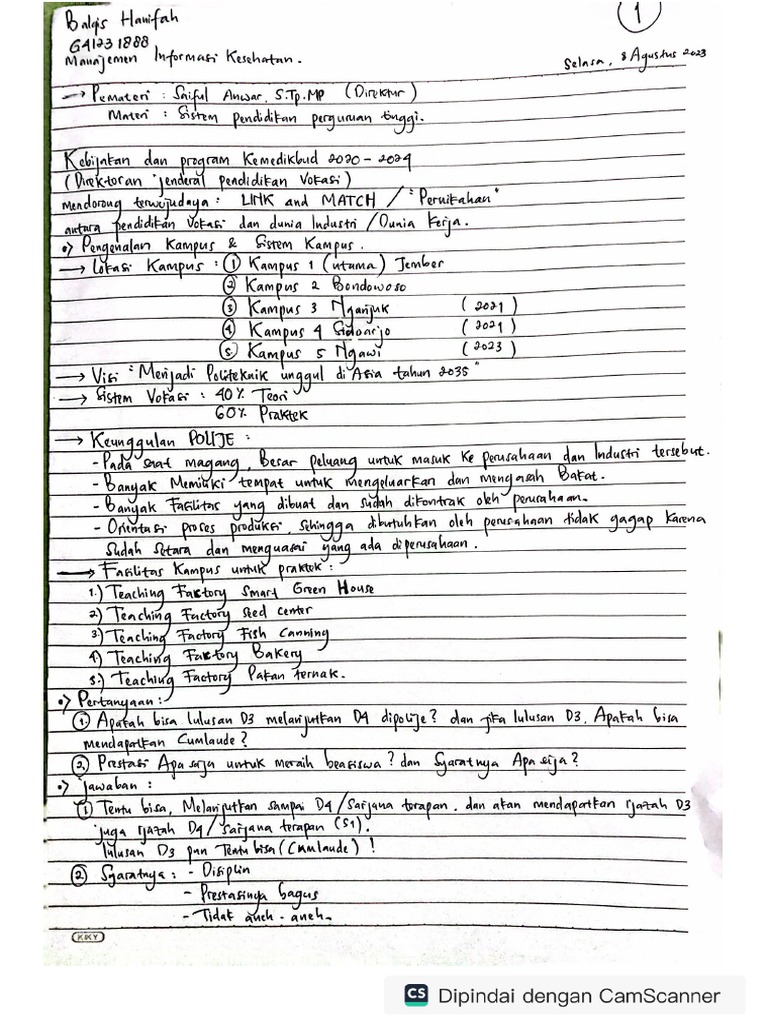 Balqis Hanifah
G41231888
Manajemen Informasi Kesehatan.
1
Selasa, 8 Agustus 2023
→ Pemateri : Saiful Anwar, S.Tp.MP (Direktur)
Materi : Sistem pendidikan perguruan tinggi.
Kebijakan dan program Kemedikbud 2020 - 2024
(Direktoran jenderal pendidikan Vokasi)
mendorong terwujudaya : LINK and MATCH / "Pernikahan"
antara pendidikan Vokasi dan dunia Industri / Dunia Kerja.
•) Pengenalan Kampus & Sistem Kampus.
→ Lokasi Kampus : ① Kampus 1 (utama) Jember
② Kampus 2 Bondowoso
③ Kampus 3 Nganjuk (2021)
④ Kampus 4 Sidoarjo (2021)
⑤ Kampus 5 Ngawi (2023)
→ Visi "Menjadi Politeknik unggul di Asia tahun 2035"
→ Sistem Vokasi : 40% Teori
60% Praktek
→ Keunggulan POLIJE :
- Pada saat magang, Besar peluang untuk masuk Ke perusahaan dan Industri tersebut.
- Banyak Memiliki tempat untuk mengeluarkan dan mengasah Bakat.
- Banyak Fasilitas yang dibuat dan sudah dikontrak oleh perusahaan.
- Orientasi proses produksi, sehingga dibutuhkan oleh perusahaan tidak gagap karena
sudah setara dan menguasai yang ada diperusahaan.
→ Fasilitas Kampus untuk praktek :
1.) Teaching Factory Smart Green House
2.) Teaching Factory seed center
3.) Teaching Factory Fish Canning
4.) Teaching Factory Bakery
5.) Teaching Factory Pakan ternak.
•) Pertanyaan :
① Apakah bisa lulusan D3 melanjutkan D4 dipolije? dan jika lulusan D3, Apakah bisa
mendapatkan Cumlaude?
② Prestasi Apa saja untuk meraih beasiswa? dan Syaratnya Apa saja?
•) Jawaban :
① Tentu bisa, Melanjutkan sampai D4/Sarjana terapan. dan akan mendapatkan ijazah D3
juga ijazah D4/sarjana terapan (S1).
lulusan D3 pun Tentu bisa (Cumlaude) !
② Syaratnya : - Disiplin
- Prestasinya bagus
- Tidak aneh-aneh.
KIKY
CS Dipindai dengan CamScanner